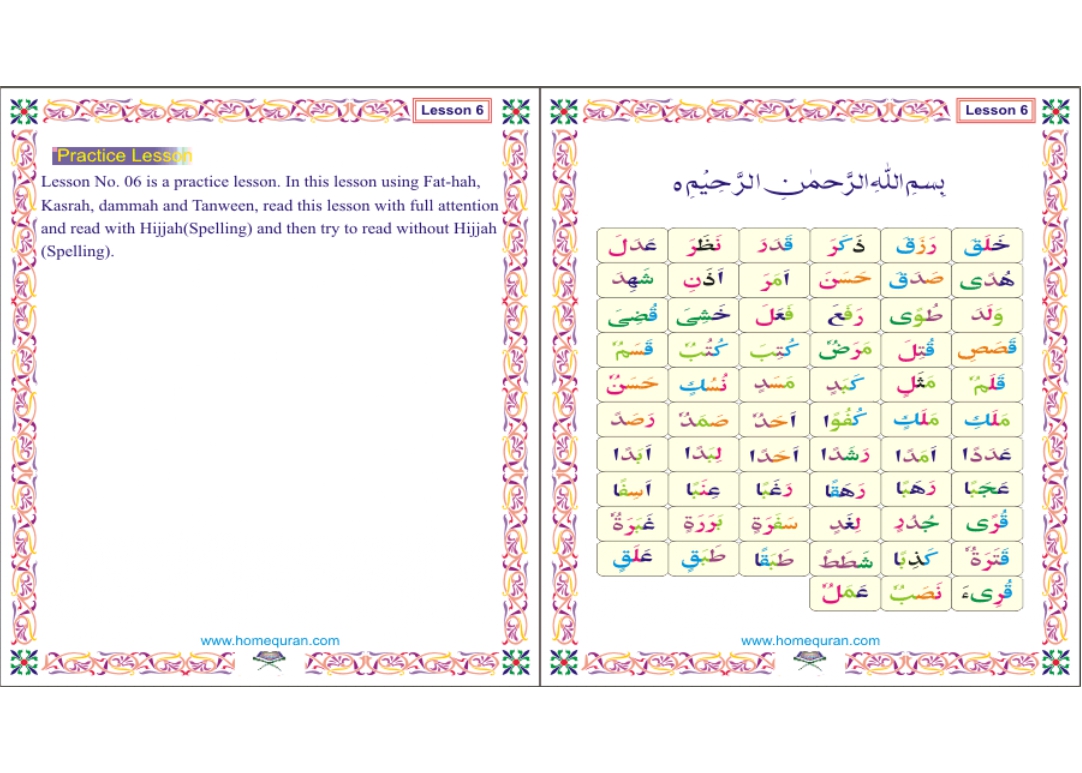 Lesson 6
Practice Lesson
Lesson No. 06 is a practice lesson. In this lesson using Fat-hah,
Kasrah, dammah and Tanween, read this lesson with full attention
and read with Hijjah(Spelling) and then try to read without Hijjah
(Spelling).
www.homequran.com
Lesson 6
بِسمِ اللهِ الرَّحمٰنِ الرَّحِيْمِ ه
خَلَقَ رَزَقَ ذَكَرَ قَدَرَ نَظَرَ عَدَلَ
هُدًى صَدَقَ حَسَنَ اَمَرَ اَذَنِ شَهِدَ
وَلَدَ طُوًى رَفَعَ فَعَلَ خَشِىَ قُضِىَ
قَصَصِ قُتِلَ مَرَضٌ كُتِبَ كُتُبٌ قَسَمٌ
قَلَمٌ مَثَلٍ كَبَدٍ مَسَدٍ نُسُكٍ حَسَنٌ
مَلَكِ مَلَكٍ كُفُوًا اَحَدٌ صَمَدٌ رَصَدً
عَدَدًا اَمَدًا رَشَدًا اَحَدًا لِبَدًا اَبَدًا
عَجَبًا رَهَبًا رَهَقًا رَغَبًا عِنَبًا اَسِفًا
قُرًى جُدُدٍ لِغَدٍ سَفَرَةٍ بَرَرَةٍ غَبَرَةٌ
قَتَرَةٌ كَذِبًا شَطَطً طَبَقًا طَبَقٍ عَلَقٍ
قُرِىءَ نَصَبٌ عَمَلٌ
www.homequran.com